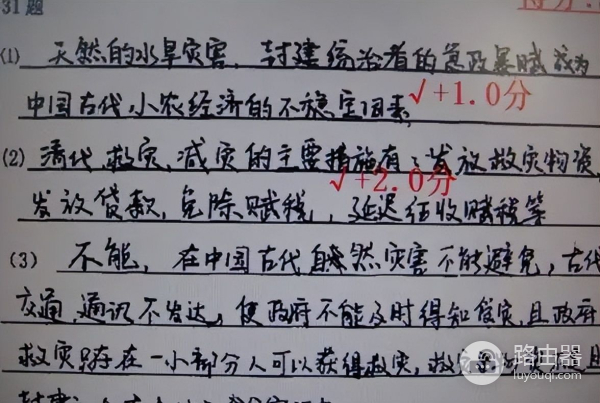 31题
得分:
(1) 天然的水旱灾害，封建统治者的急政暴赋成为
中国古代小农经济的不稳定因素,
√+1.0分
(2) 清代救灾、减灾的主要措施有：发放救灾物资,
√+2.0分
发放贷款，免除赋税，延迟征收赋税等
(3) 不能，在中国古代自然灾害不能避免，古代
交通、通讯不发达，使政府不能及时得知灾，且政府
救灾只存在一小部分人可以获得救灾，救
路由器
luyouqi.com